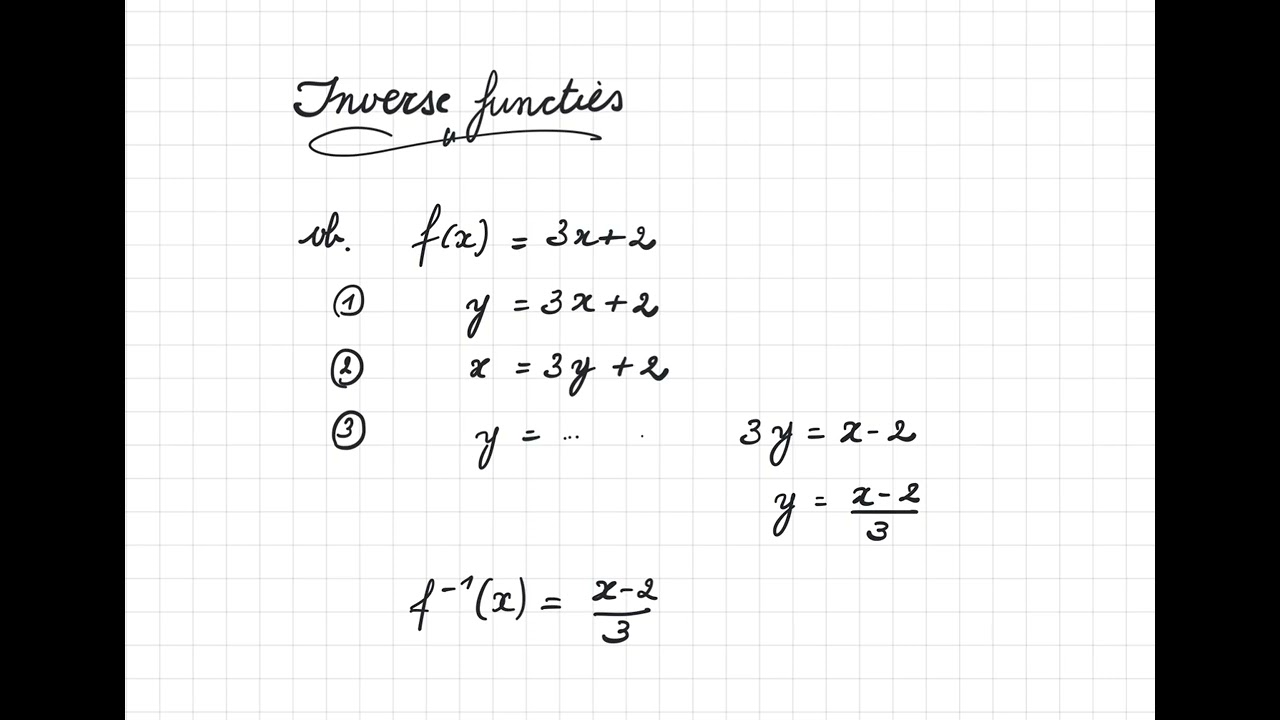 Inverse functies
vb. f(x) = 3x+2
① y = 3x+2
② x = 3y+2
③ y = ... 3y = x-2
y = \frac{x-2}{3}
f⁻¹(x) = \frac{x-2}{3}